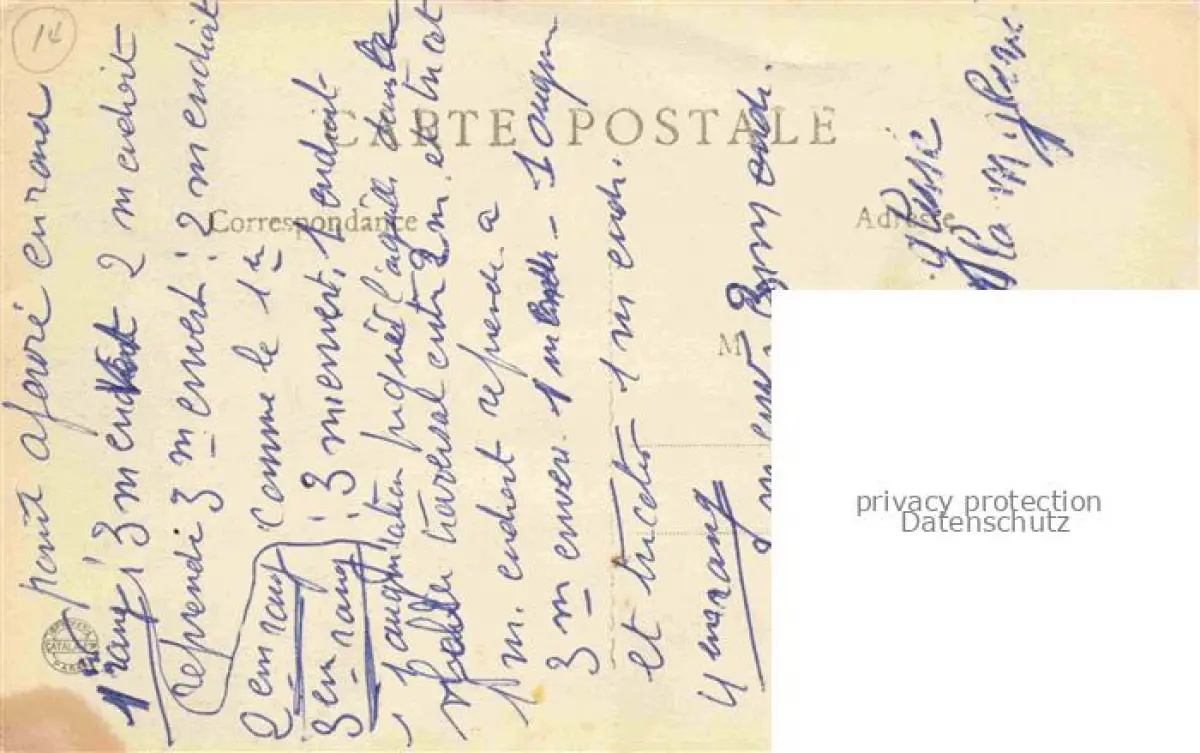 1€
CARTE POSTALE
Correspondance
Adresse
M
point ajouré en rond
1 rang 3 m endroit 2 m endroit
reprendi 3 m envers : 2 m endroit
2 em rang comme le 1er
3 em rang : 3 m envers, 1 endroit
1 augmentation piqués l'aiguille dans la
maille traversal entre 2 m. et tricot
1 m. endroit reprendre a
3 m envers. 1 maille - 1 augm
et tricoter 1 m endr.
4 em rang
m env 3 m endr.
privacy protection
Datenschutz